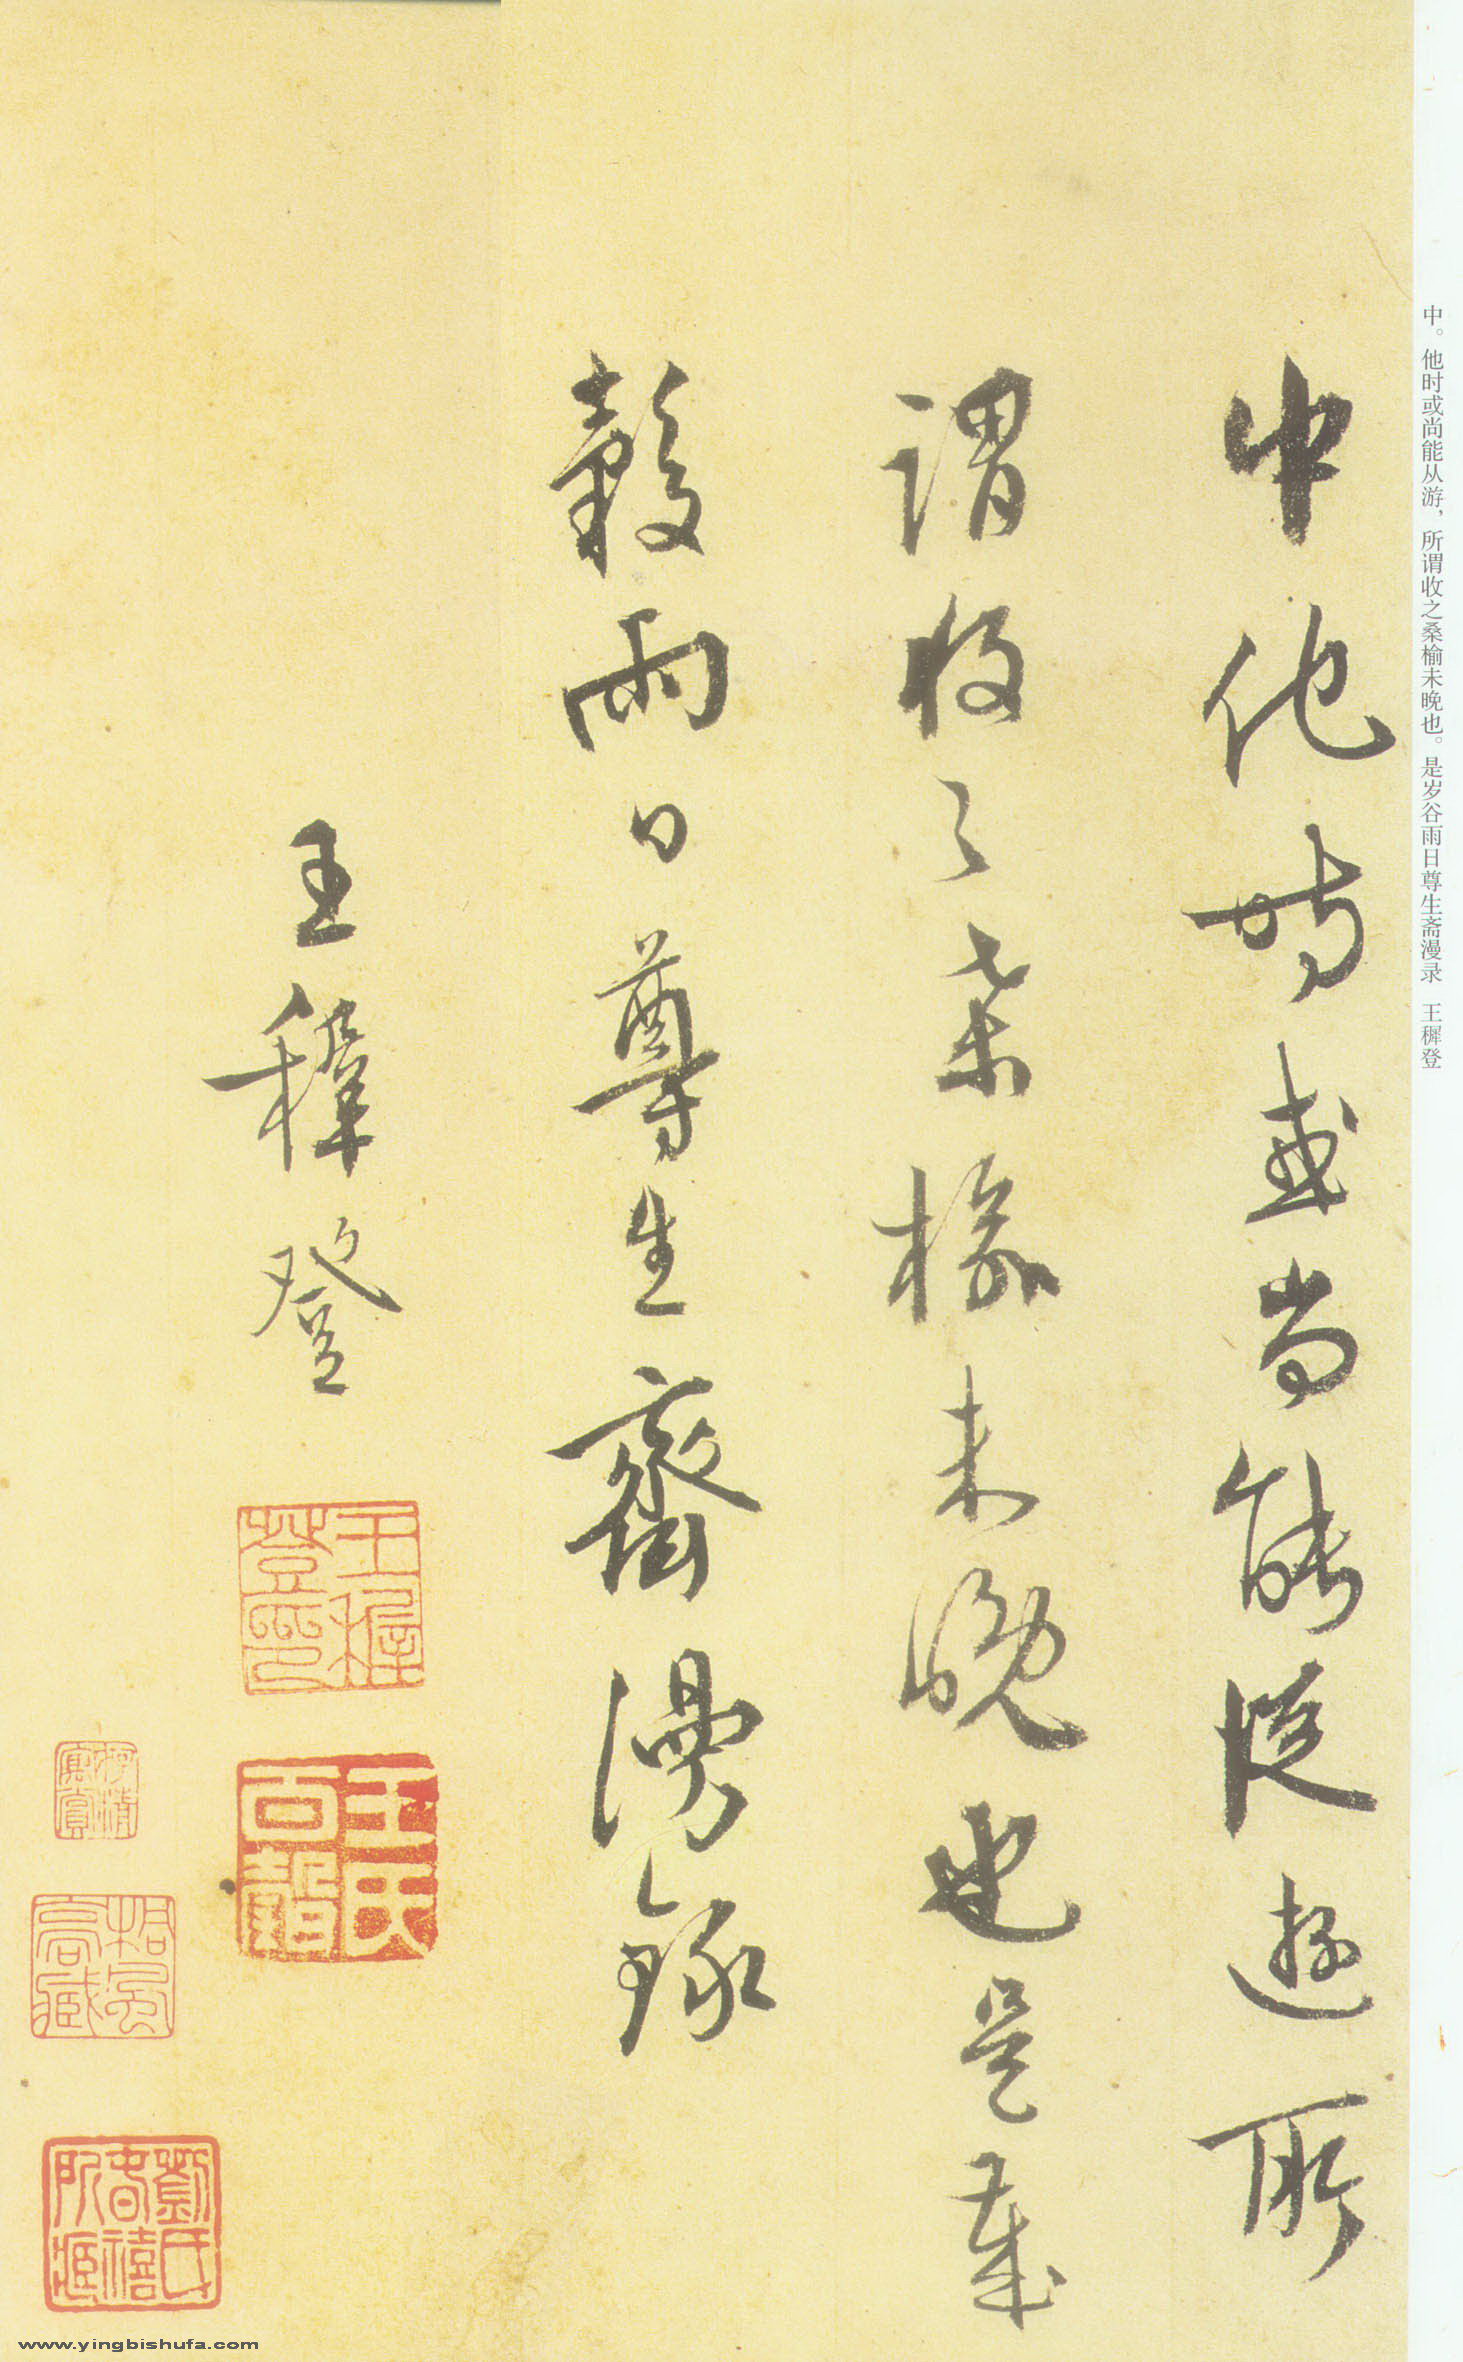 中。他时或尚能从游，所谓收之桑榆未晚也。是岁谷雨日尊生斋漫录　王穉登
中他時或尚能從遊所
謂收之桑榆未晚也是歲
穀雨日尊生齋漫錄
王穉登
王穉登印
王氏百穀
劉氏書禧所藏
www.yingbishufa.com